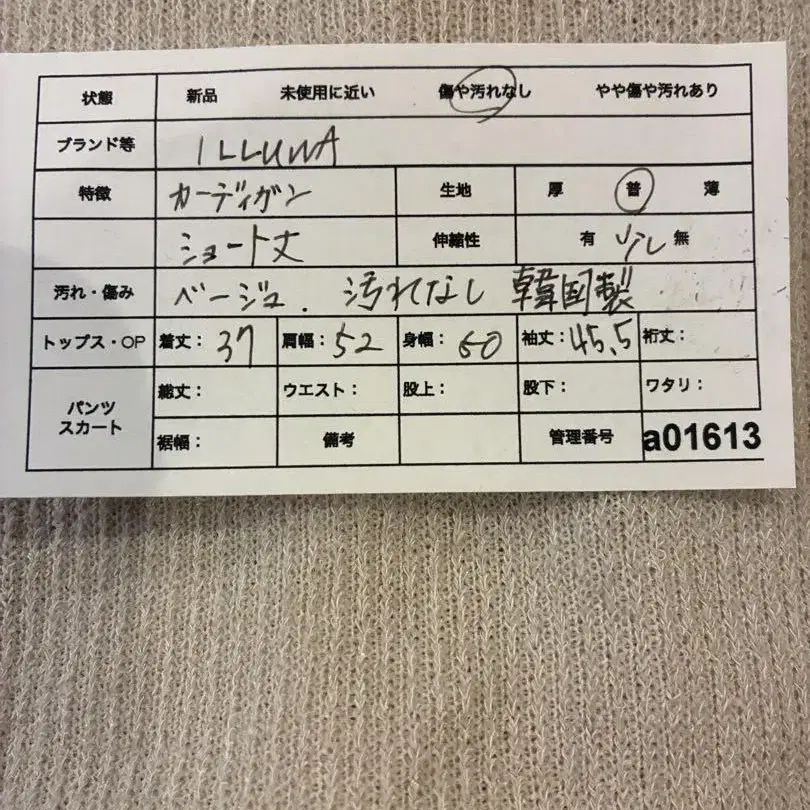 状態 新品 未使用に近い 傷や汚れなし やや傷や汚れあり
ブランド等 ILLUNA
特徴 カーディガン 生地 厚 普 薄
ショート丈 伸縮性 有 少し 無
汚れ・傷み ベージュ. 汚れなし 韓国製
トップス・OP 着丈: 37 肩幅: 52 身幅: 60 袖丈: 45.5 裄丈:
パンツ スカート 総丈: ウエスト: 股上: 股下: ワタリ:
裾幅: 備考 管理番号 a01613